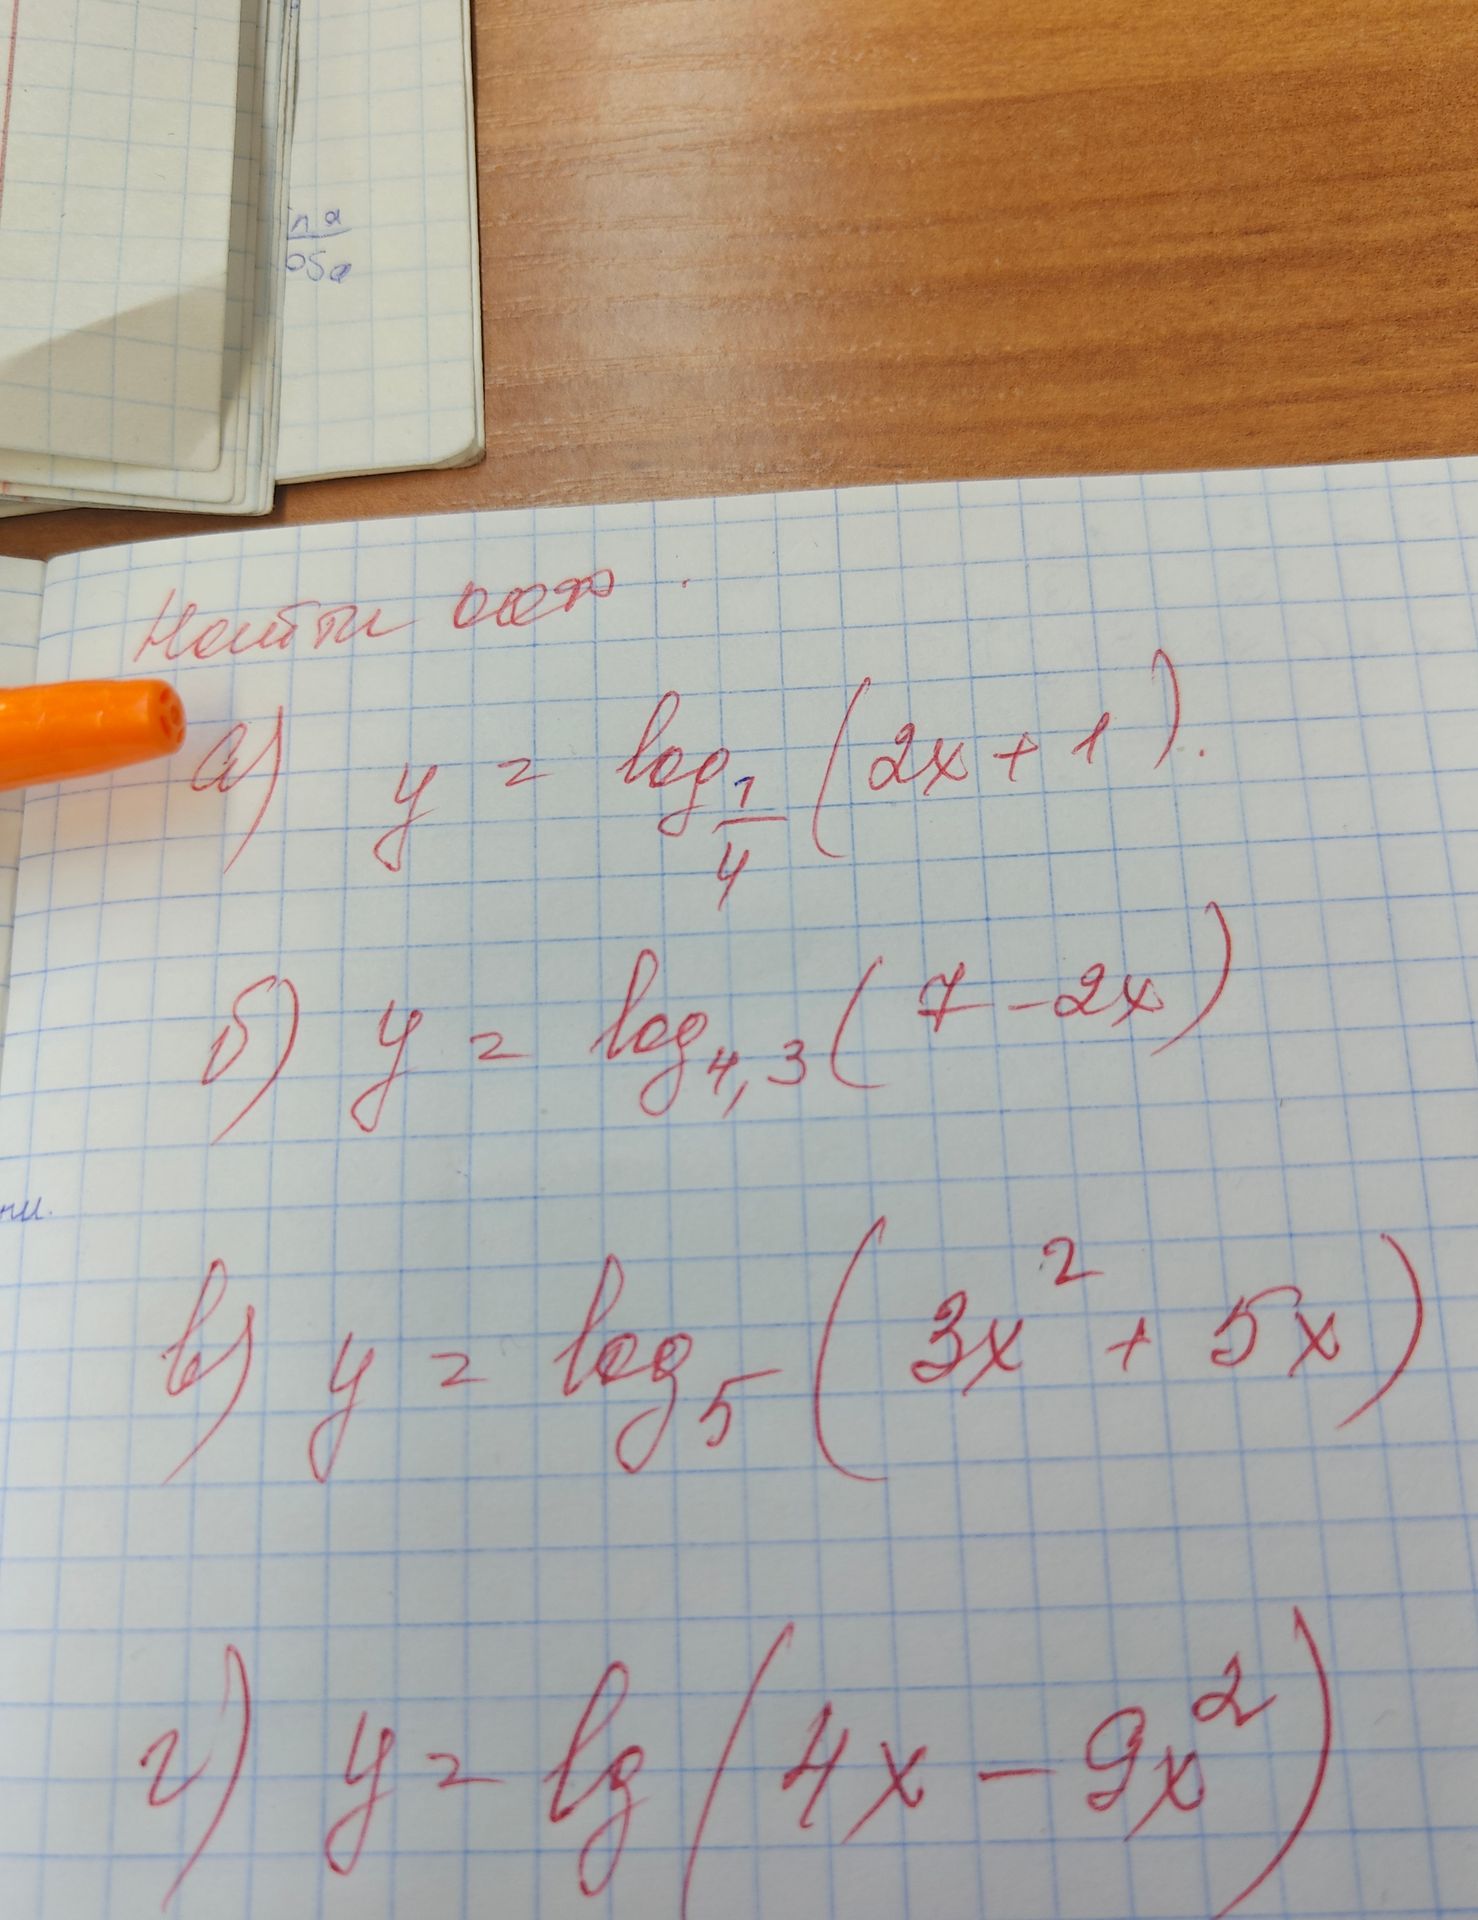 па
оба
Найти ООФ.
а) y = log_{1/4} (2x + 1).
б) y = log_{4,3} (7 - 2x)
в) y = log_5 (3x^2 + 5x)
г) y = lg (4x - 9x^2)